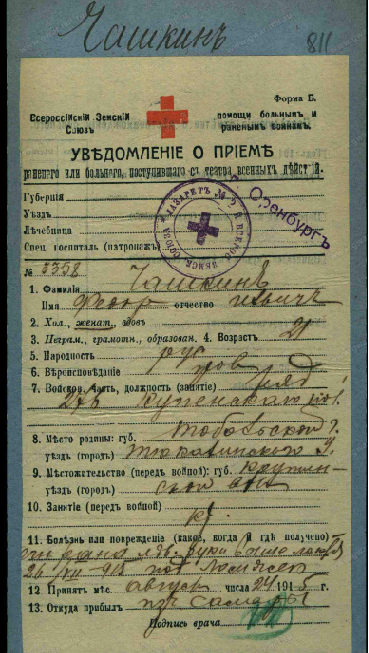 Чашкинъ
811
Форма Б.
Всероссійскій Земскій Союзъ
помощи больнымъ и раненымъ воинамъ.
УВѢДОМЛЕНІЕ О ПРІЕМѢ
раненаго или больного, поступившаго съ театра военныхъ дѣйствій.
Губернія
Уѣздъ
г. Оренбургъ
Лѣчебница
Спец. госпиталь (патронажъ)
ЛАЗАРЕТЪ № 2
№ 3358
1. Фамилія Чашкинъ
Имя Федоръ отчество Ильичъ
2. Хол., женат., вдовъ
3. Неграм., грамотн., образован. 4. Возрастъ 21
5. Народность рус
6. Вѣроисповѣданіе прав
7. Войсков. часть, должность (занятіе) ряд
8. Мѣсто родины: губ. Тобольской г.
уѣздъ (городъ) Тюкалинскаго у.
9. Мѣстожительство (передъ войной): губ. Крутин-
уѣздъ (городъ) ской вол
10. Занятіе (передъ войной)
11. Болѣзнь или поврежденіе (какое, когда и гдѣ получено)
рана лѣв. руки
26/VII 915 под
12 Принятъ мѣс. августъ числа 24 1915 г.
13. Откуда прибылъ изъ Самары
Подпись врача